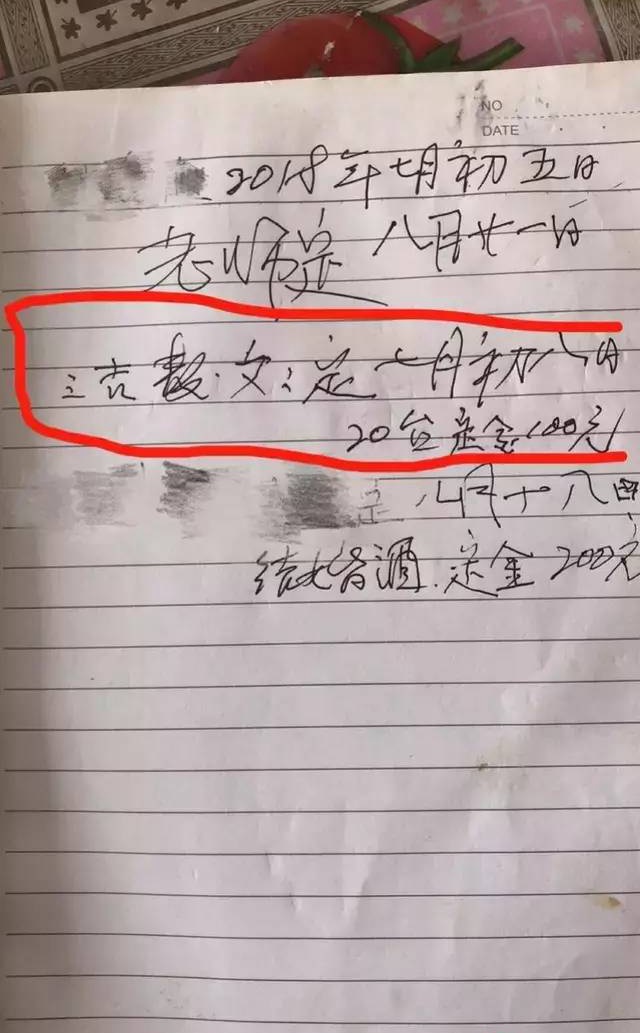 NO
DATE
2018年七月初五日
老师定 八月廿一日
定七月初八日
20台定金100元
八月十八日
结婚酒.定金200元